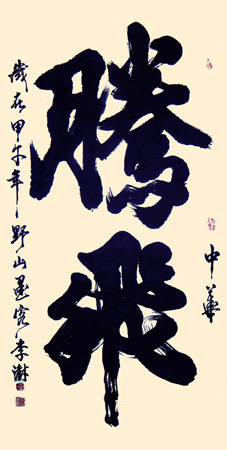 中華
騰飛
歲在甲午年野山墨客李澍